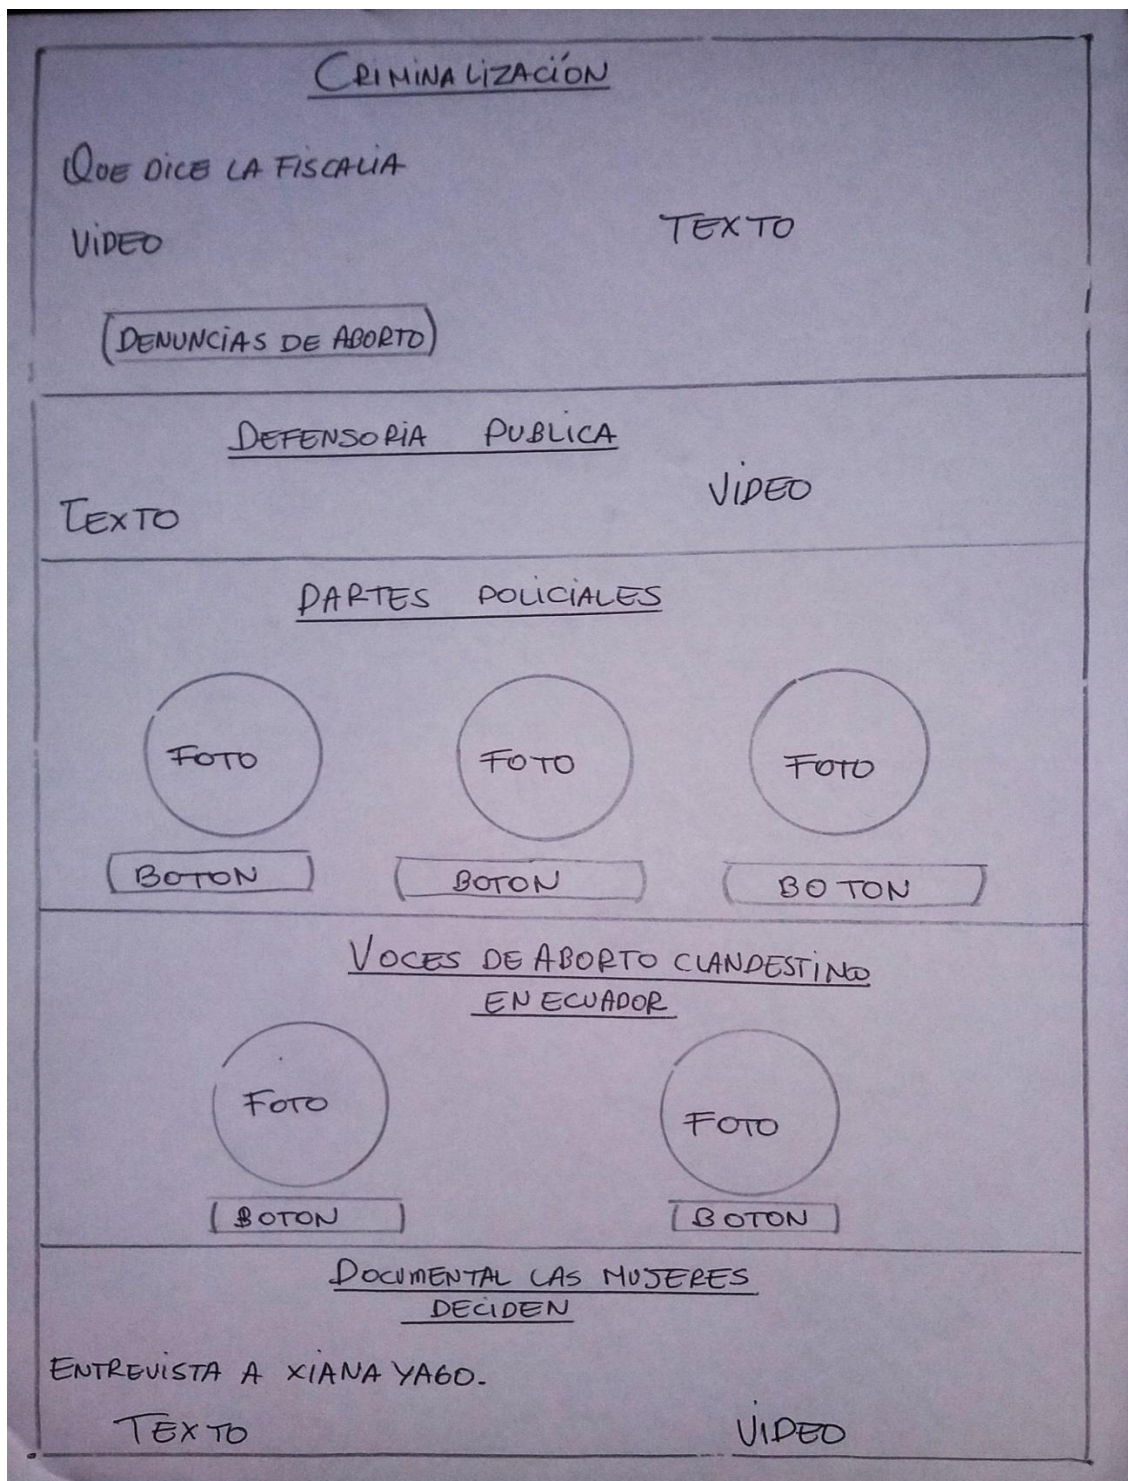 CRIMINALIZACIÓN
QUE DICE LA FISCALIA
VIDEO TEXTO
DENUNCIAS DE ABORTO
DEFENSORIA PUBLICA
TEXTO VIDEO
PARTES POLICIALES
FOTO FOTO FOTO
BOTON BOTON BOTON
VOCES DE ABORTO CLANDESTINO
EN ECUADOR
FOTO FOTO
BOTON BOTON
DOCUMENTAL LAS MUJERES
DECIDEN
ENTREVISTA A XIANA YAGO.
TEXTO VIDEO